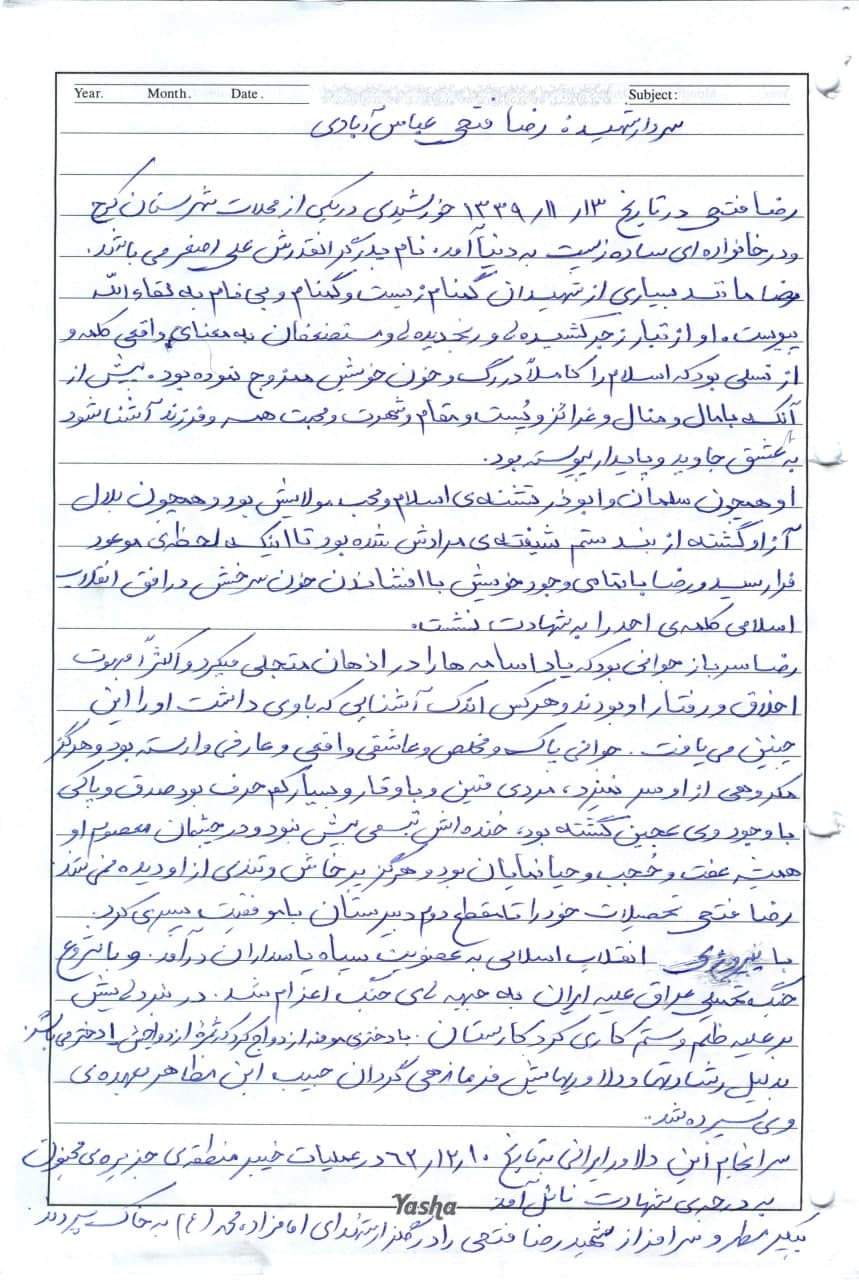 Year. Month. Date. Subject:
سردار شهید: رضا فتحی عباس آبادی
رضا فتحی در تاریخ ۱۳ر۱۱ر۱۳۳۹ خورشیدی در یکی از محلات شهرستان کرج
و در خانواده ای ساده زیست به دنیا آمد. نام پدر گرانقدرش علی اصغر می باشد.
رضا مانند بسیاری از شهیدان گمنام زیست و گمنام و بی نام به لقاءالله
پیوست. او از تبار زجر کشیده ها و رنجدیده ها و مستضعفان به معنای واقعی کلمه و
از نسلی بود که اسلام را کاملاً در رگ و خون خویش ممزوج نموده بود. پیش از
آنکه با مال و منال و غرائز و پُست و مقام و شهرت و محبت همسر و فرزند آشنا شود
به عشق جاوید و پایدار پیوسته بود.
او همچون سلمان و ابوذر تشنه ی اسلام و محب مولایش بود و همچون بلال
آزاد گشته از بند ستم شیفته ی مرادش شده بود تا اینکه لحظه ی موعود
فرا رسید و رضا با تمامی وجود خویش با افشاندن خون سرخش در افق انقلاب
اسلامی کلمه ی احد را به شهادت نشست.
رضا سرباز جوانی بود که یاد اسامه ها را در اذهان متجلی میکرد و اکثراً مبهوت
اخلاق و رفتار او بودند و هر کس اندک آشنایی که با وی داشت او را این
چنین می یافت. جوانی پاک و مخلص و عاشقی واقعی و عارفی وارسته بود و هرگز
مکروهی از او سر نمیزد، مردی متین و با وقار و بسیار کم حرف بود صدق و پاکی
با وجود وی عجین گشته بود، خنده اش تبسمی بیش نبود و در چشمان معصوم او
همیشه عفت و حُجب و حیا نمایان بود و هرگز پرخاش و تندی از او دیده نمی شد
رضا فتحی تحصیلات خود را تا مقطع دوم دبیرستان با موفقیت سپری کرد.
با پیروزی انقلاب اسلامی به عضویت سپاه پاسداران درآمد. و با شروع
جنگ تحمیلی عراق علیه ایران به جبهه های جنگ اعزام شد. در نبردهایش
بر علیه ظلم و ستم کاری کرد کارستان. با دختری مومنه ازدواج کرد که ثمره ازدواجش ۱ دختر می باشد.
بدلیل رشادتها و دلاوریهایش فرماندهی گردان حبیب ابن مظاهر بعهده ی
وی سپرده شد.
سرانجام این دلاور ایرانی به تاریخ ۱۰ر۱۲ر۶۲ در عملیات خیبر منطقه ی جزیره ی مجنون
به درجه ی شهادت نائل آمد
Yasha
پیکر مطهر و سرافراز شهید رضا فتحی را در گلزار شهدای امامزاده محمد (ع) به خاک سپردند.